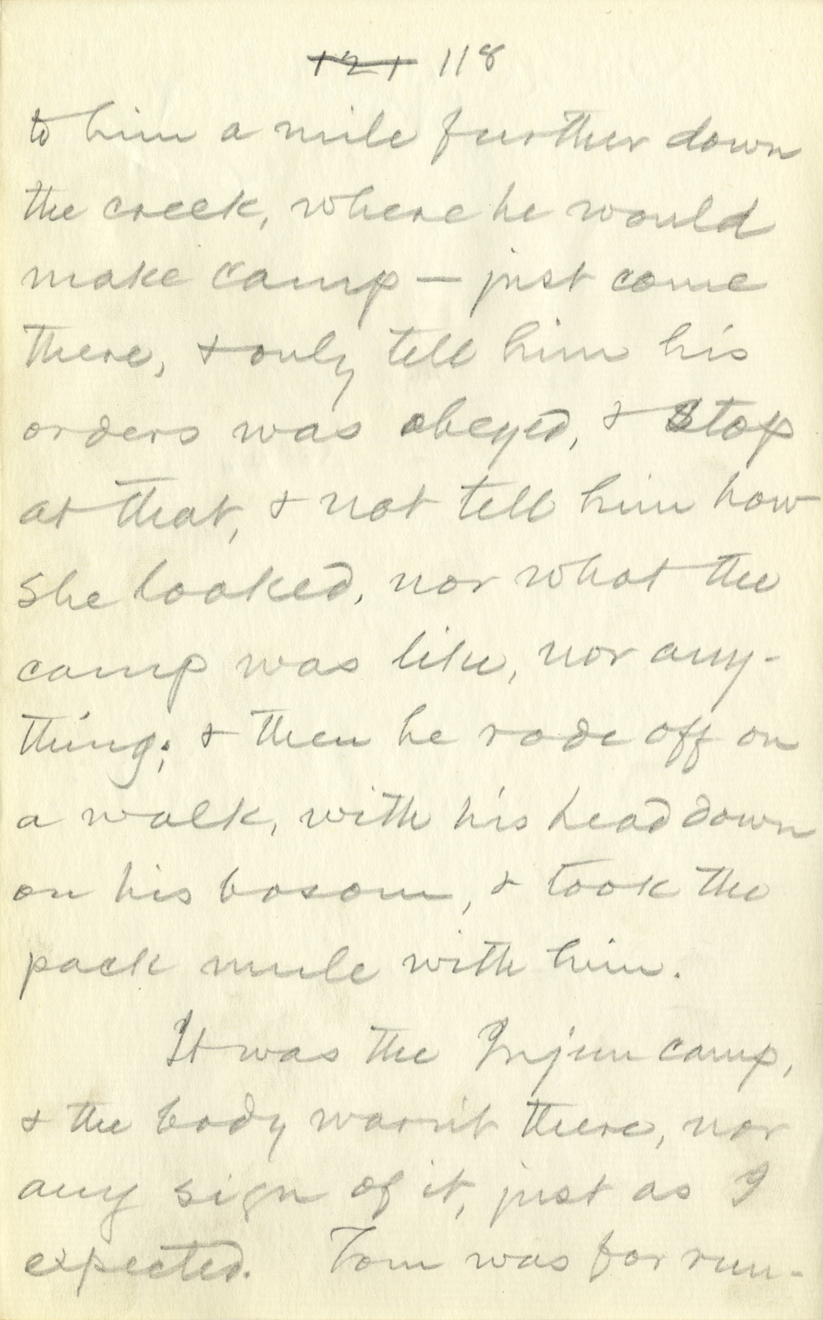 121 118
to him a mile further down
the creek, where he would
make camp — just come
there, & only tell him his
orders was obeyed, & stop
at that, & not tell him how
she looked, nor what the
camp was like, nor any-
thing; & then he rode off on
a walk, with his head down
on his bosom, & took the
pack mule with him.
It was the Injun camp,
& the body warn't there, nor
any sign of it, just as I
expected. Tom was for run-